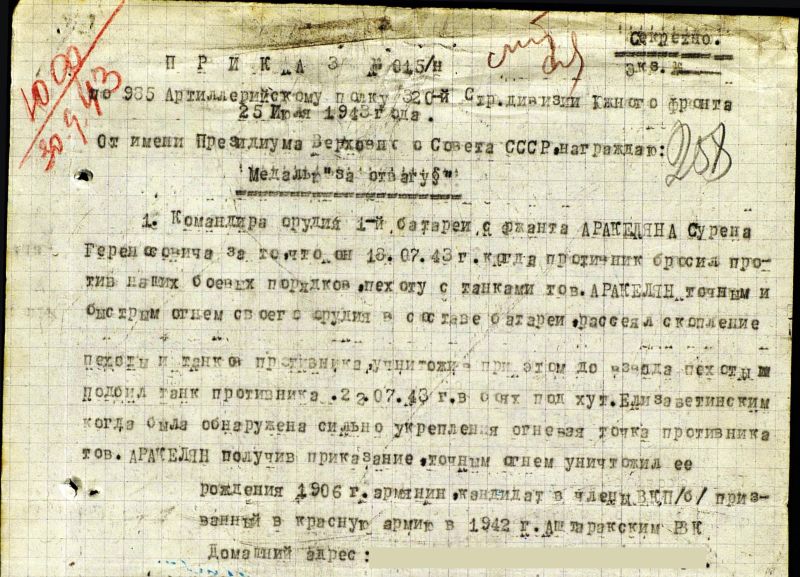 Секретно.
экз.№
П Р И К А З № 015/н
1000
30.9.43
по 985 Артиллерийскому полку 320-й Стр.дивизии Южного фронта
25 Июля 1943 года.
От имени Президиума Верховн с о Совета СССР,награждаю:
258
Медалью "за отвагу"
1. Командира орудия 1-й батареи с ржанта АРАКЕЛЯНА Сурена
за то,что он 18.07.43 г.когда противник бросил про-
тив наших боевых порядков,пехоту с танками тов.АРАКЕЛЯН точным и
быстрым огнем своего орудия в составе батареи,рассеял скопление
пехоты и танков противника,уничтожив при этом до взвода пехоты и
подбил танк противника.22.07.43 г.в боях под хут.Елизаветинским
когда была обнаружена сильно укрепления огневая точка противника
тов.АРАКЕЛЯН получив приказание,точным огнем уничтожил ее
рождения 1906 г.армянин,кандидат в члены ВКП/б/ приз-
ванный в красную армию в 1942 г.Аштаракским РВК
Домашний адрес: